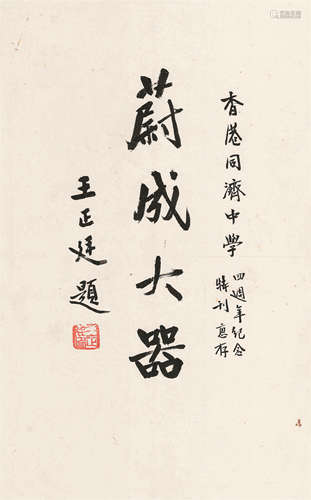 香港同濟中學
四週年紀念
特刊惠存
蔚成大器
王正廷題